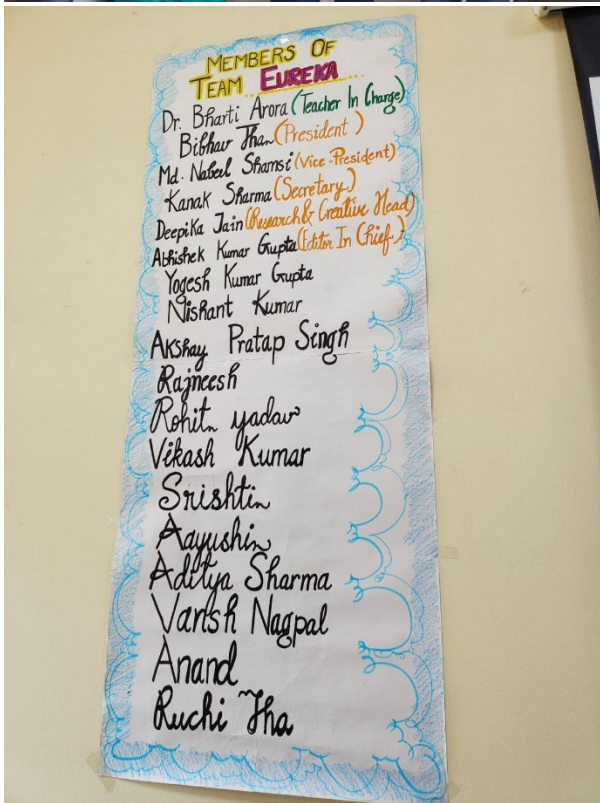 MEMBERS OF
TEAM EUREKA....
Dr. Bharti Arora (Teacher In Charge)
Bibhav Jha (President)
Md. Nabeel Shamsi (Vice-President)
Kanak Sharma (Secretary)
Deepika Jain (Research & Creative Head)
Abhishek Kumar Gupta (Editor In Chief)
Yogesh Kumar Gupta
Nishant Kumar
Akshay Pratap Singh
Rajneesh
Rohit yadav
Vikash Kumar
Srishti
Aayushi
Aditya Sharma
Vansh Nagpal
Anand
Ruchi Jha